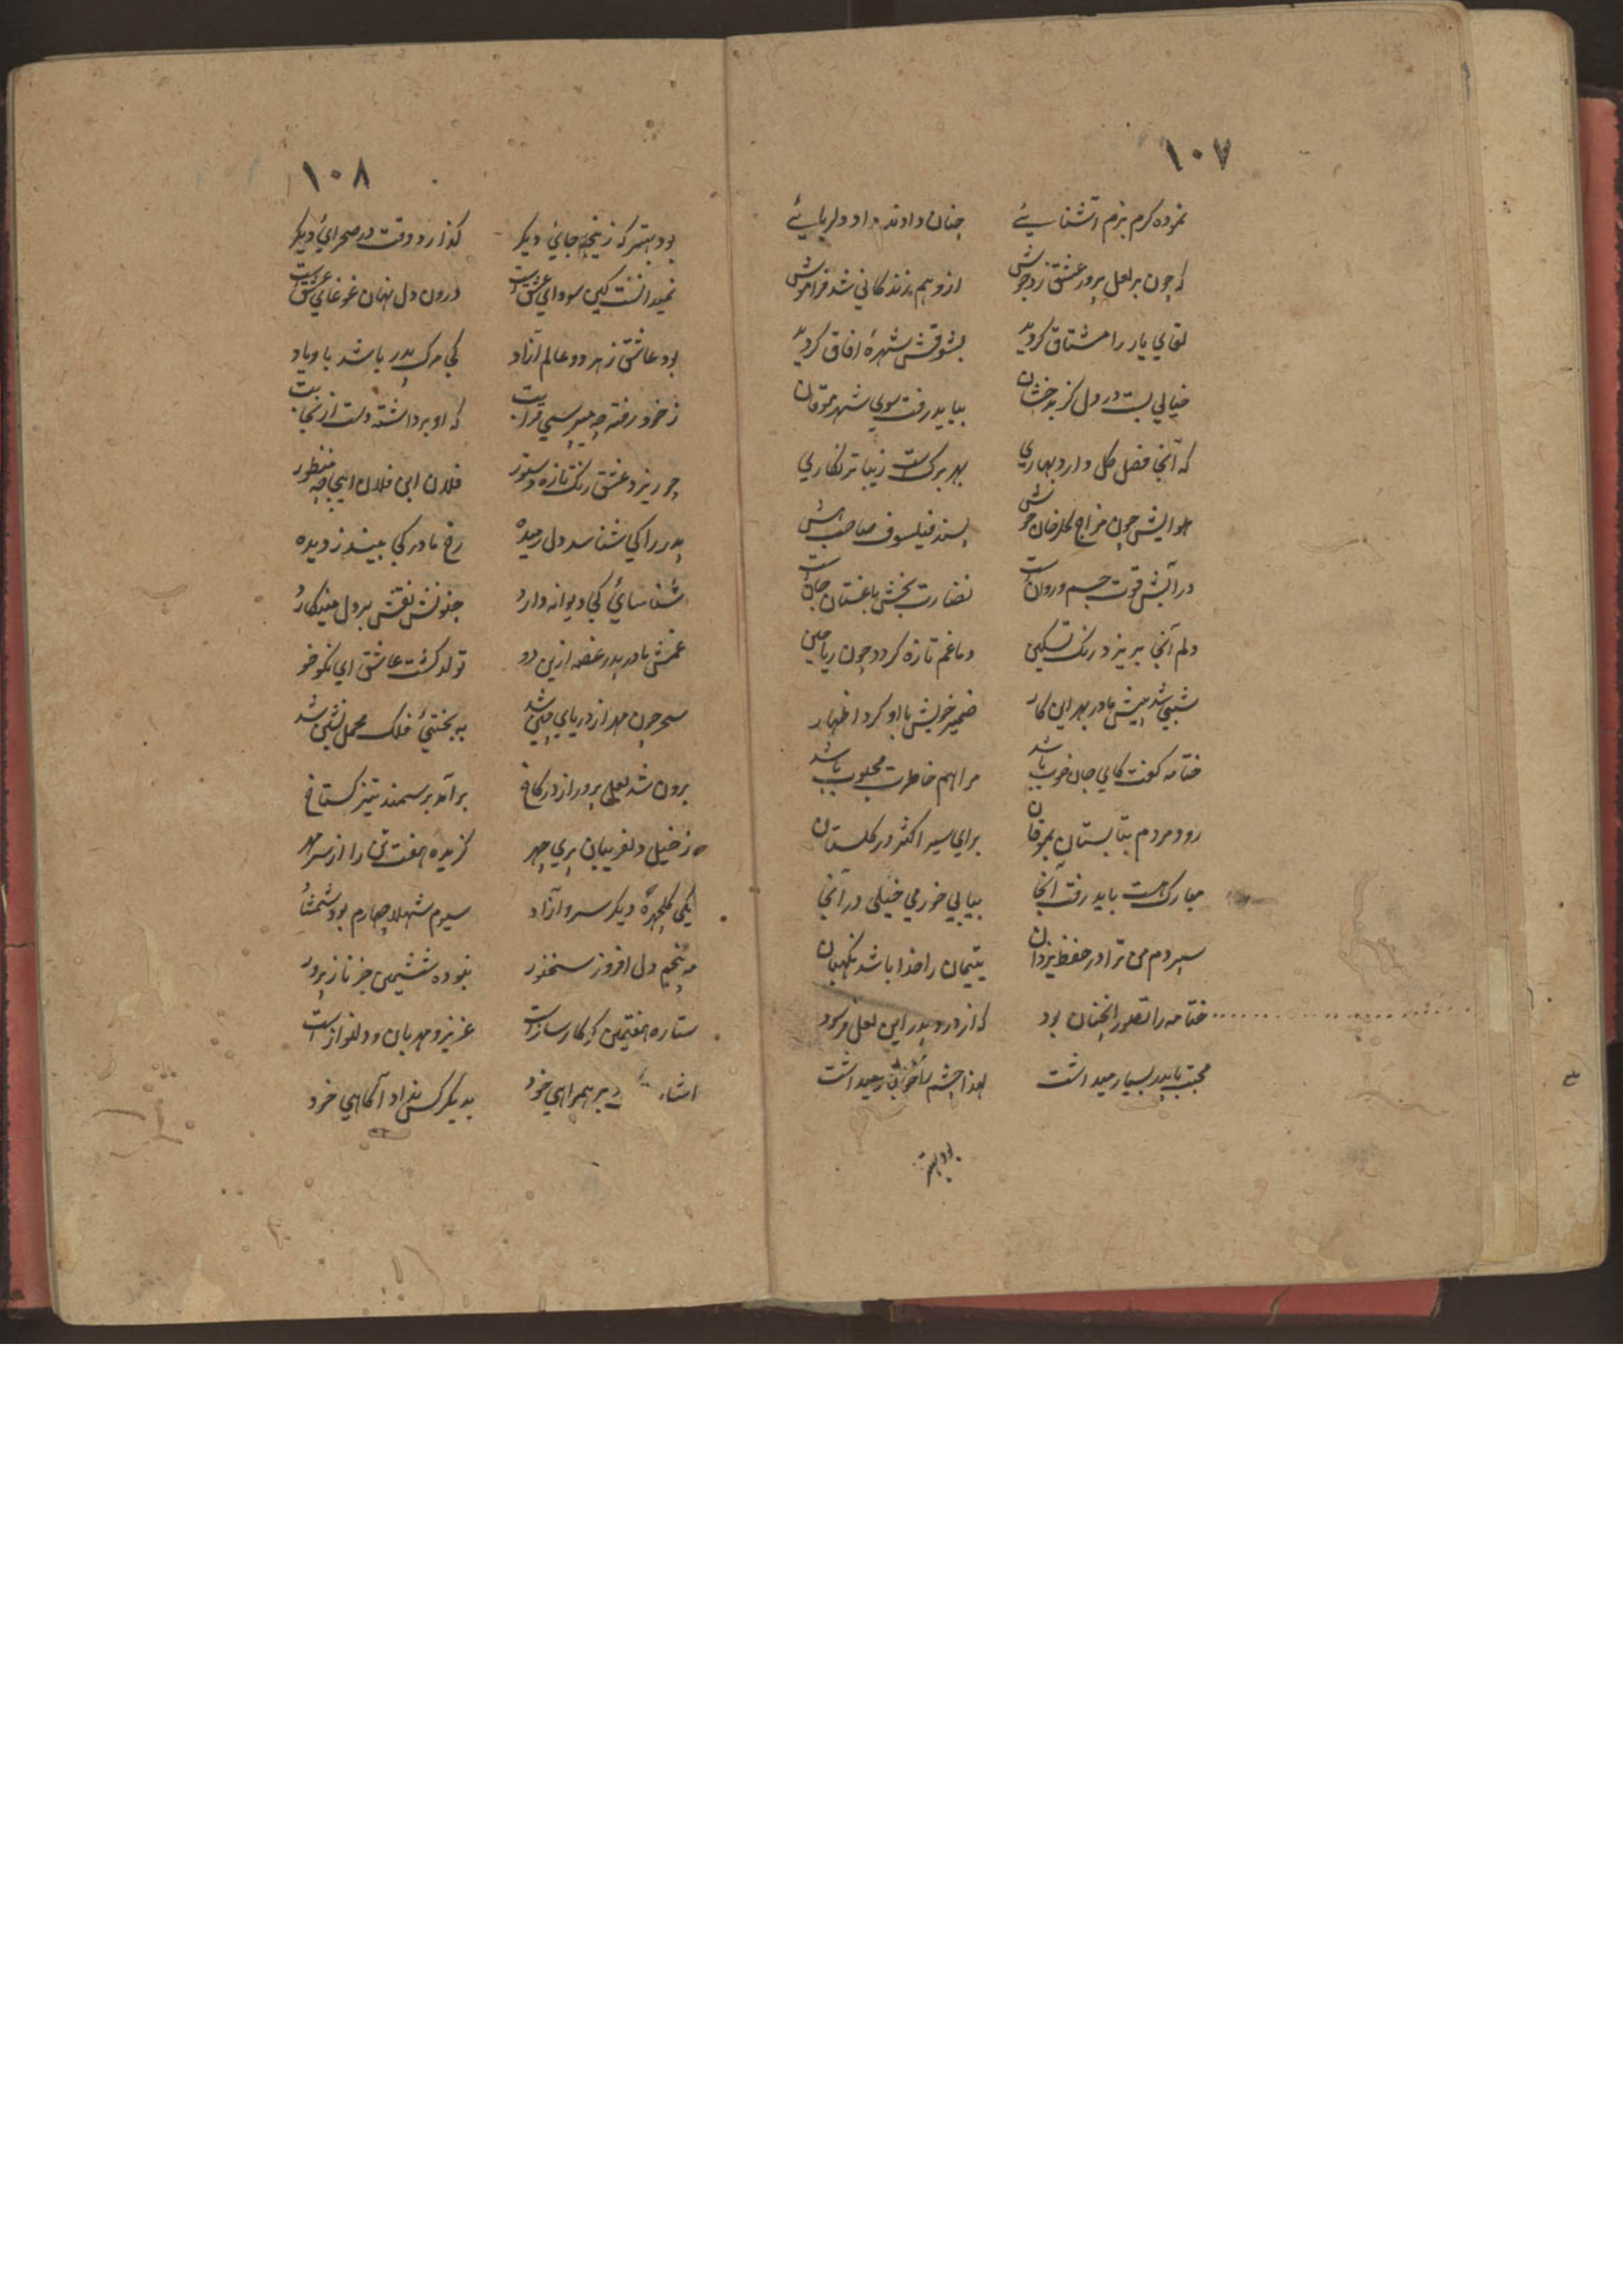 ۱۰۷
نموده گرم بزم آشنایئے چنان دادند داد دلربایئے
که چون بر لعل پرور عشق زد جوش ازو هم زندکانی شد فراموش
لقای یار را مشتاق کردید بشوقش شهرهٔ افاق کردید
خیالی بست در دل کز بدخشان بباید رفت سوی شهر موقان
که آنجا فصل کل دارد بهاری بهر برکست زیباتر نکاری
هوایش چون مزاج کلرخان خوش پسند فیلسوف صاحب هش
در آبش قوت جسم و روانست نضارت بخش باغستان جانست
دلم آنجا پریزد رنک تسکین دماغم تازه کردد چون ریاحین
شبی شد پیش مادر بهر این کار ضمیر خویش با او کرد اظهار
ختامه کفت کای جان خوب باشد مرا هم خاطرت محبوب باشد
رود مردم بتابستان بموقان برای سیر اکثر در کلستان
مبارک هست باید رفت آنجا بیابی خورمی خیلی در آنجا
سپردم من ترا در حفظ یزدان یتیمان را خدا باشد نکهبان
ختامه را تصور انچنان بود که از درد پدر این لعل فرسود
محبت با پدر بسیار میداشت لهذا چشم را خونبار میداشت
بود بهتر
۱۰۸
بود بهتر که زینجا جانی دیکر کذارد وقت در صحرای دیکر
نمیدانست کین سودای عشقست درون دل نهان غوغای عشقست
بود عاشق ز هر دو عالم آزاد کی مرک پدر باشد با و یاد
ز خود رفته چه میپرسی قرابت که او برداشته دست از نجابت
چو ریزد عشق رنک تازه دستور فلان ابن فلان اینجا چه منظور
پدر را کی شناسد دل رمیده رخ مادر کی بیند ز دیده
شناسائ کی دیوانه دارد جنونش نقش بر دل مینکارد
غمش مادر پدر غصه ازین دو تولد کشت عاشق ای نکوخو
سحر چون مهر از دریای چین شد به بختیٔ فلک محمل نشین شد
برون شد لعل پرور از در کاخ برآمد بر سمند تیز کستاخ
ز خیل دلفریبان پری چهر کزیده هفت تن را از سر مهر
یکی کلچهره دیکر سرو آزاد سیوم شهلا چهارم بود شمشاد
پنجم دل افروز سخنور نبوده ششمین جز ناز پرور
ستاره هفتمین کو کارسازست عزیز و مهربان و دلنوازست
بر همراهی خود بدیکر کس نداد آکاهی خود